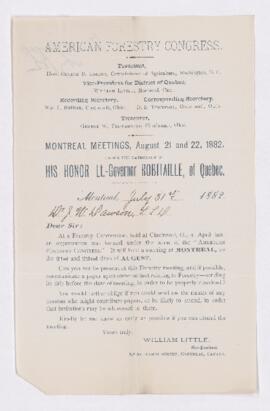 AMERICAN FORESTRY CONGRESS.
President,
Hon. George B. Loring, Commissioner of Agriculture, Washington, D.C.
Vice-President for District of Quebec,
William Little, Montreal, Que.
Recording Secretary, Corresponding Secretary,
Cincinnati, Ohio. Cincinnati, Ohio.
Treasurer,
Cincinnati, Ohio.
MONTREAL MEETINGS, August 21 and 22, 1882.
UNDER THE PATRONAGE OF
HIS HONOR Lt.-Governor ROBITAILLE, of Quebec.
Montreal, July 31st 1882
Dr J. W. Dawson, LL.D
Dear Sir:
At a Forestry Convention, held at Cincinnati, O., in April last,
an organization was formed under the name of the "American
Forestry Congress." It will hold a meeting at MONTREAL, on
the 21st and 22nd days of AUGUST.
Can you not be present at this Forestry meeting, and if possible,
communicate a paper upon some subject relating to Forestry—sending
its title before the date of meeting, in order to be properly announced?
You would further oblige if you could send me the names of any
persons who might contribute papers, or be likely to attend, in order
that invitations may be addressed to them.
Kindly let me know as early as possible if you can attend the
meeting.
Yours truly,
WILLIAM LITTLE,
Vice-President,
Montreal, Canada.